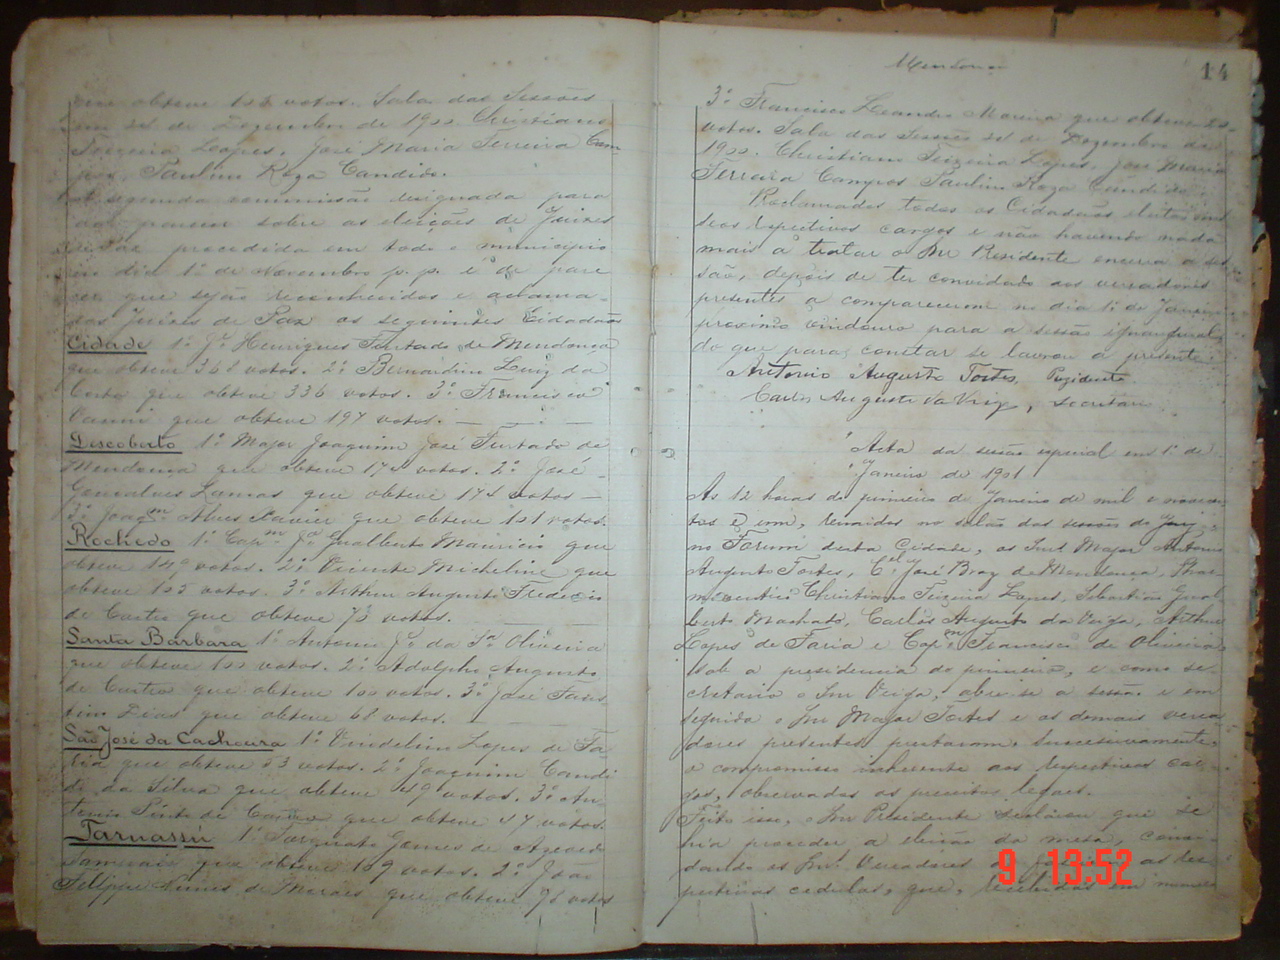 que obteve 123 votos. Sala das Sessões
em 21 de Dezembro de 1900 Christiano
Teixeira Lopes. José Maria Ferreira Cam
pos, Paulino Roza Candido.
A segunda commissão designada para
dar parecer sobre as eleições de Juizes
de Paz procedida em todo o municipio
em dia 1º de Novembro p. p. é de pare
cer que sejão reconhecidos e aclama-
dos Juizes de Paz os seguintes Cidadãos
Cidade 1º Jº Henriques Furtado de Mendonça
que obteve 368 votos. 2º Bernardino Luiz da
Costa que obteve 336 votos. 3º Francisco
Vanni que obteve 197 votos.
Descoberto 1º Major Joaquim José Furtado de
Mendonça que obteve votos. 2º José
Gonsalves Lamas que obteve 174 votos
3º Joaqm. Alves Xavier que obteve 121 votos.
Rochedo 1º Capm. Jº Gualberto Mauricio que
obteve 149 votos. 2º Vicente Micheline que
obteve 123 votos. 3º Arthur Augusto Frederico
de Castro que obteve 73 votos.
Santa Barbara 1º Antonio Jº da Sª Oliveira
que obteve votos. 2º Adolpho Augusto
de Castro que obteve 100 votos. 3º José Faus
tino Dias que obteve 68 votos.
São José da Cachoeira 1º Vindelino Lopes de Fa-
ria que obteve 53 votos. 2º Joaquim Candi
do da Silva que obteve 49 votos. 3º An-
tonio Pinto de que obteve 47 votos.
Taruassú 1º Torquato Gomes de Azevedo
que obteve 109 votos. 2º João
Felippe Nunes de Moraes que obteve 76 votos
Mendonça
14
3º Francisco Leandro Moreira que obteve
votos. Sala das Sessões 21 de Dezembro de
1900. Christiano Teixeira Lopes, José Maria
Ferreira Campos Paulino Roza Candido.
Proclamados todos os Cidadãos eleitos em
seos respectivos cargos e não havendo nada
mais a tratar o Snr Presidente encerra a ses
são, depois de ter convidado aos vereadores
presentes a comparecerem no dia 1º de Janeiro
proximo vindouro para a sessão ignaugural,
do que para constar se lavrou a presente.
Antonio Augusto Fortes, Prezidente
Carlos Augusto da Veiga, secretario
Acta da sessão especial em 1º de
Janeiro de 1901
As 12 horas do primeiro de Janeiro de mil e novecen
tos e um, reunidos no salão das sessões do Jury
no Forum desta Cidade, os Snrs Major Antonio
Augusto Fortes, Cel José Braz de Mendonça, Phar-
maceutico Christiano Teixeira Lopes, Sebastião Gual
berto Machado, Carlos Augusto da Veiga, Arthur
Lopes de Faria e Capm. Francisco de Oliveira
sob a presidencia do primeiro, e como se-
cretario o Snr Veiga, abre-se a sessão e em
seguida o Snr Major Fortes e os demais verea
dores presentes prestaram successivamente
o compromisso inherente aos respectivos car-
gos, observados os preceitos legaes.
Feito isso, o Snr Presidente declarou que se
hia proceder a eleição da mesa, convi
dando os Snrs Vereadores as res
pectivas cedulas, que, recebidas em numero
9 13:52